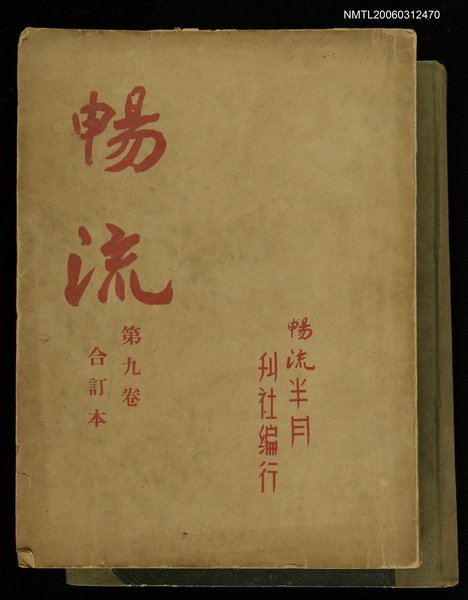 NMTL20060312470
暢流
第九卷
合訂本
暢流半月
刋社編行